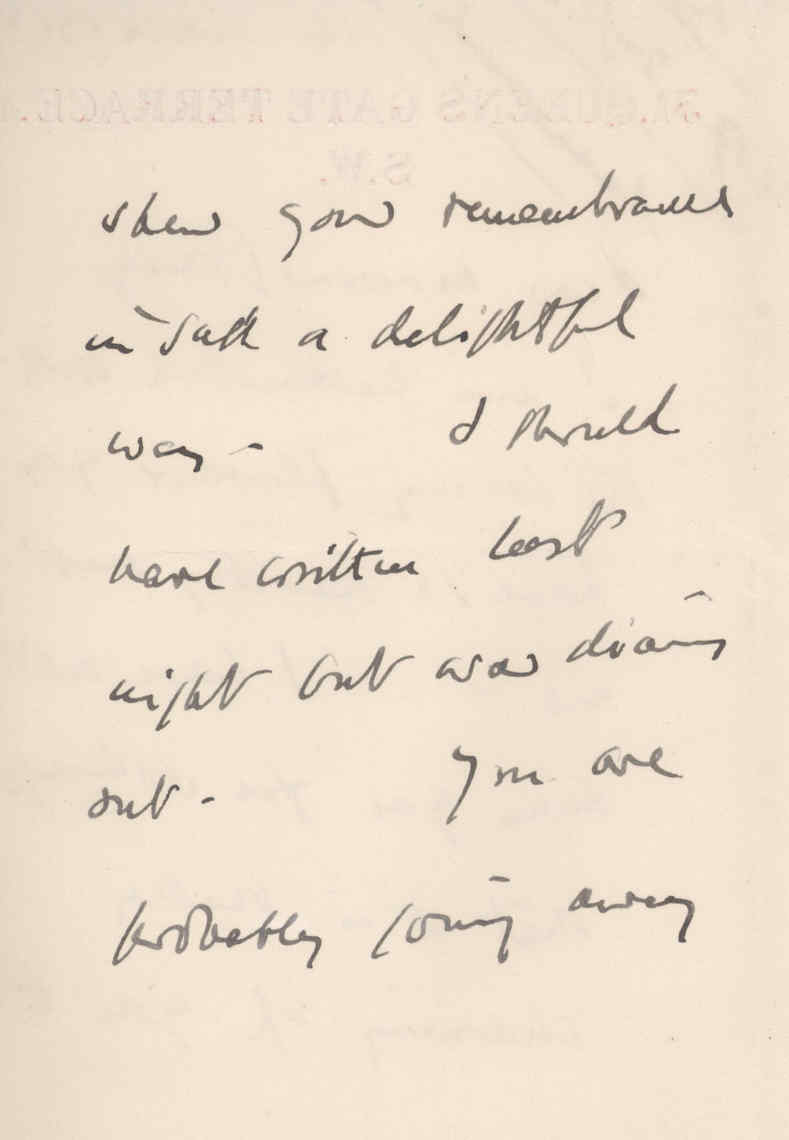 31. QUEENS GATE TERRACE.
S.W.
shew your remembrance
in such a delightful
way - I should
have written last
night but was dining
out - You are
probably going away